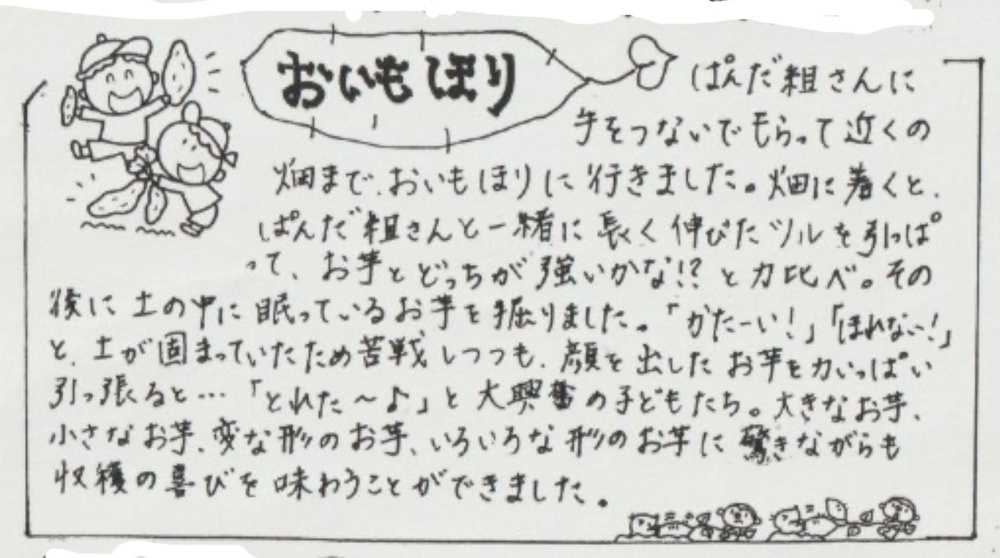 おいもほり
ぱんだ組さんに
手をつないでもらって近くの
畑まで、おいもほりに行きました。畑に着くと、
ぱんだ組さんと一緒に長く伸びたツルを引っぱ
って、お芋とどっちが強いかな!?と力比べ。その
後に土の中に眠っているお芋を掘りました。「かたーい!」「ほれない!」
と、土が固まっていたため苦戦しつつも、顔を出したお芋を力いっぱい
引っ張ると…「とれた〜♪」と大興奮の子どもたち。大きなお芋、
小さなお芋、変な形のお芋、いろいろな形のお芋に驚きながらも
収穫の喜びを味わうことができました。